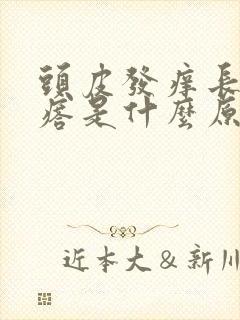 頭皮發癢長
痞是什麼原
近本大&新川